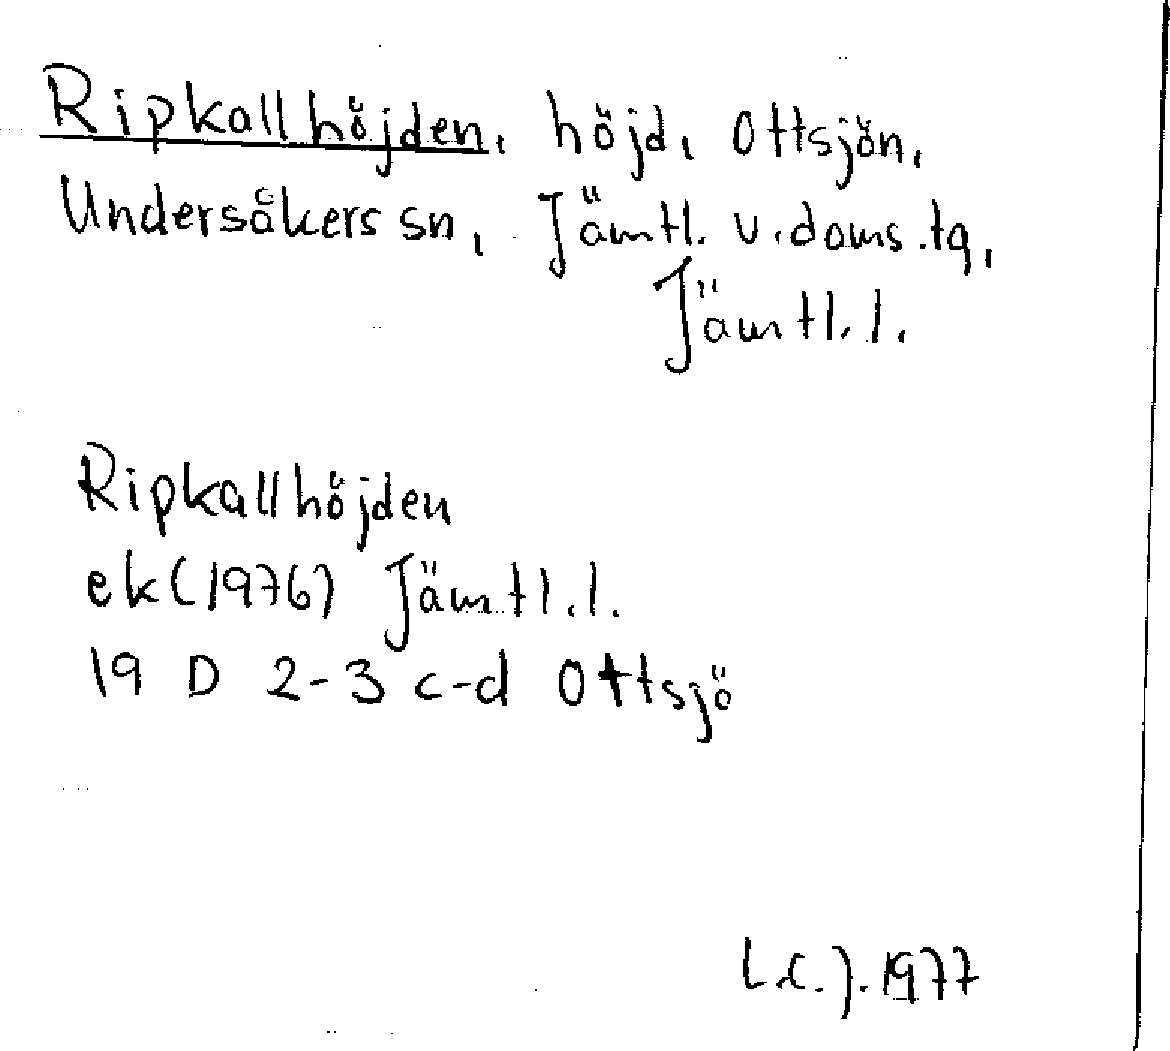 Ripkallhöjden, höjd, Ottsjön,
Undersåkers sn, Jämtl. v. doms. tg,
Jämtl. l.
Ripkallhöjden
ek (1976) Jämtl. l.
19 D 2-3 c-d Ottsjö
L.C.J. 1977